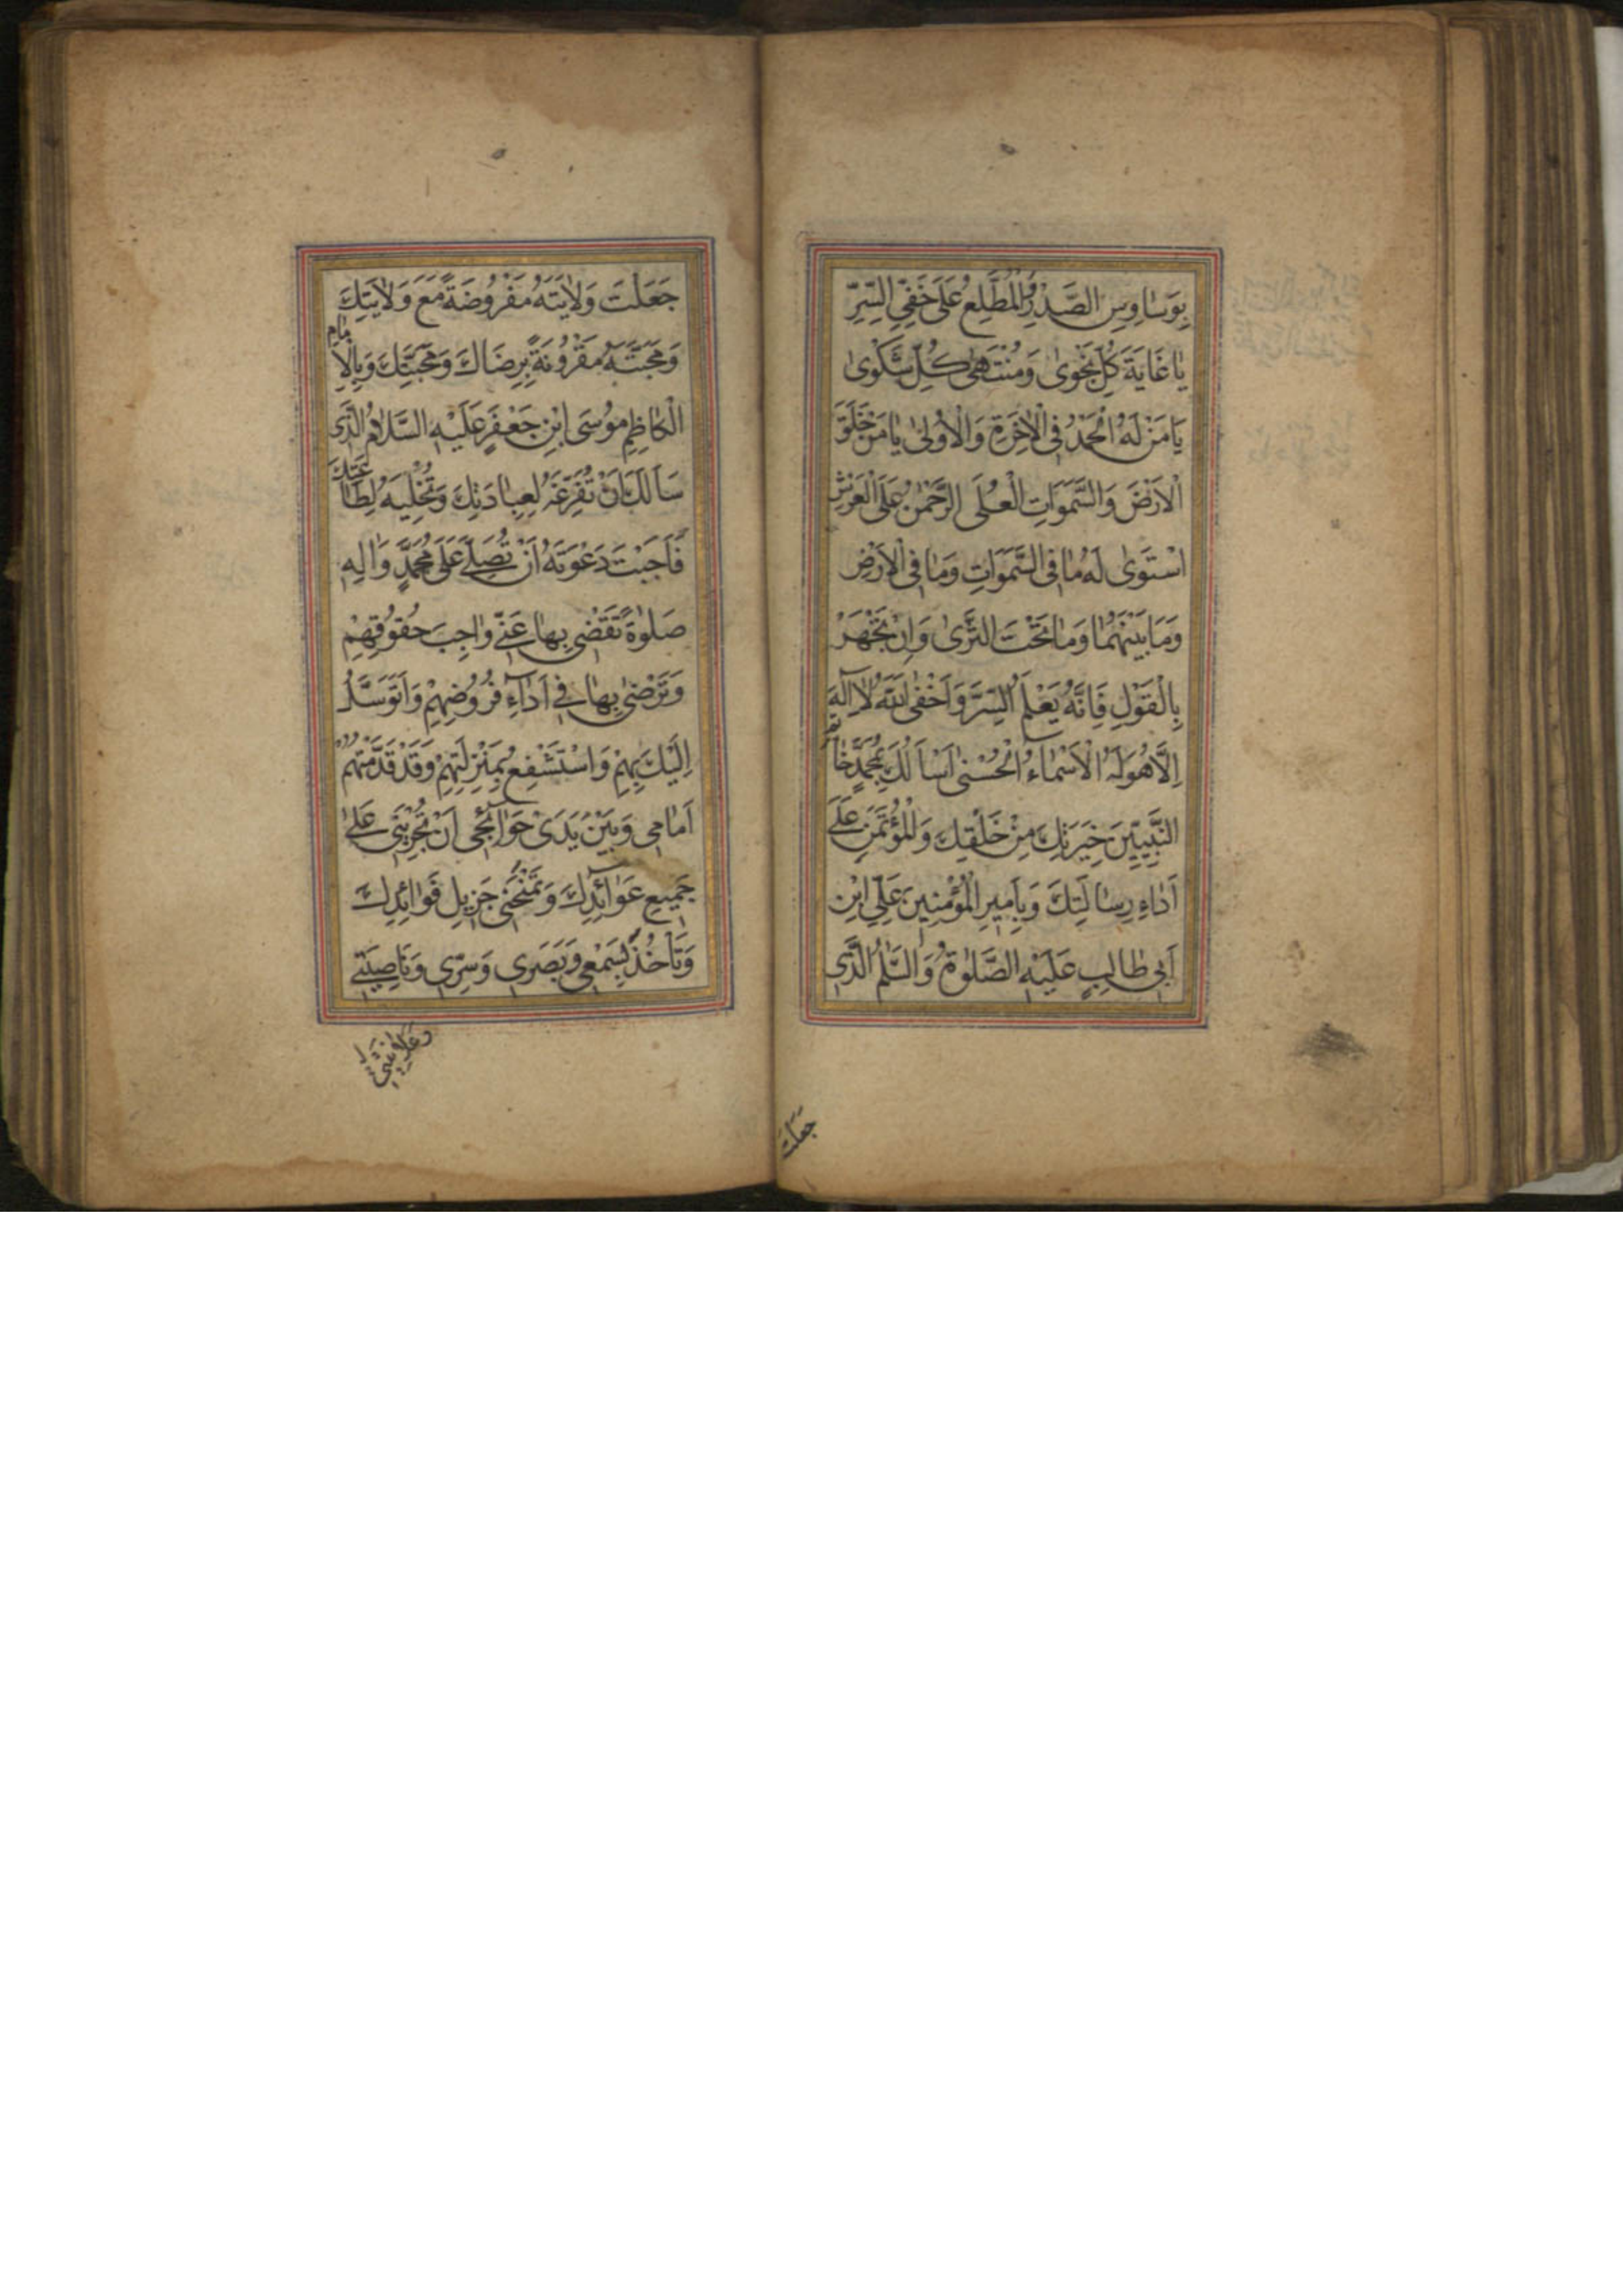 بِوَسٰاوِسِ الصَّدْرِ الْمُطَّلِعُ عَلَىٰ خَفِيِّ السِّرِّ
يٰا غَايَةَ كُلِّ نَجْوىٰ وَمُنْتَهىٰ كُلِّ شَكْوىٰ
يٰا مَنْ لَهُ الْحَمْدُ فِى الْاٰخِرَةِ وَالْاُولىٰ يٰا مَنْ خَلَقَ
الْاَرْضَ وَالسَّمَوٰاتِ الْعُلَى الرَّحْمٰنُ عَلَى الْعَرْشِ
اسْتَوىٰ لَهُ مٰا فِى السَّمَوٰاتِ وَمٰا فِى الْاَرْضِ
وَمٰا بَيْنَهُمٰا وَمٰا تَحْتَ الثَّرىٰ وَاِنْ تَجْهَرْ
بِالْقَوْلِ فَاِنَّهُ يَعْلَمُ السِّرَّ وَاَخْفىٰ اَللّٰهُ لاٰ اِلٰهَ
اِلاَّ هُوَ لَهُ الْاَسْمٰاءُ الْحُسْنىٰ اَسْاَلُكَ بِمُحَمَّدٍ خٰاتَمِ
النَّبِيِّينَ خِيَرَتِكَ مِنْ خَلْقِكَ وَالْمُؤْتَمَنِ عَلىٰ
اَدٰاءِ رِسٰالَتِكَ وَبِاَمِيرِ الْمُؤْمِنِينَ عَلِيِّ ابْنِ
اَبِى طٰالِبٍ عَلَيْهِ الصَّلوٰةُ وَالسَّلٰمُ الَّذِى
جعلت
جَعَلْتَ وَلاٰيَتَهُ مَفْرُوضَةً مَعَ وَلاٰيَتِكَ
وَمَحَبَّتَهُ مَقْرُونَةً بِرِضَاكَ وَمَحَبَّتِكَ وَبِالْاِمٰامِ
الْكٰاظِمِ مُوسَى ابْنِ جَعْفَرٍ عَلَيْهِ السَّلاٰمُ الَّذِى
سَاَلَكَ اَنْ تُفَرِّغَهُ لِعِبٰادَتِكَ وَتُخْلِيَهُ لِطٰاعَتِكَ
فَاَجَبْتَ دَعْوَتَهُ اَنْ تُصَلِّىَ عَلىٰ مُحَمَّدٍ وَاٰلِهِ
صَلوٰةً تَقْضِى بِهٰا عَنِّى وٰاجِبَ حُقُوقِهِمْ
وَتَرْضىٰ بِهٰا فِى اَدٰاءِ فُرُوضِهِمْ وَاَتَوَسَّلُ
اِلَيْكَ بِهِمْ وَاَسْتَشْفِعُ بِمَنْزِلَتِهِمْ وَقَدْ قَدَّمْتُهُمْ
اَمٰامِى وَبَيْنَ يَدَىْ حَوٰائِجِى اَنْ تُجْرِيَنِى عَلىٰ
جَمِيعِ عَوٰائِدِكَ وَتَمْنَحَنِى جَزِيلَ فَوٰائِدِكَ
وَتَاْخُذَ بِسَمْعِى وَبَصَرِى وَسِرِّى وَنٰاصِيَتِى
وعلانيتى